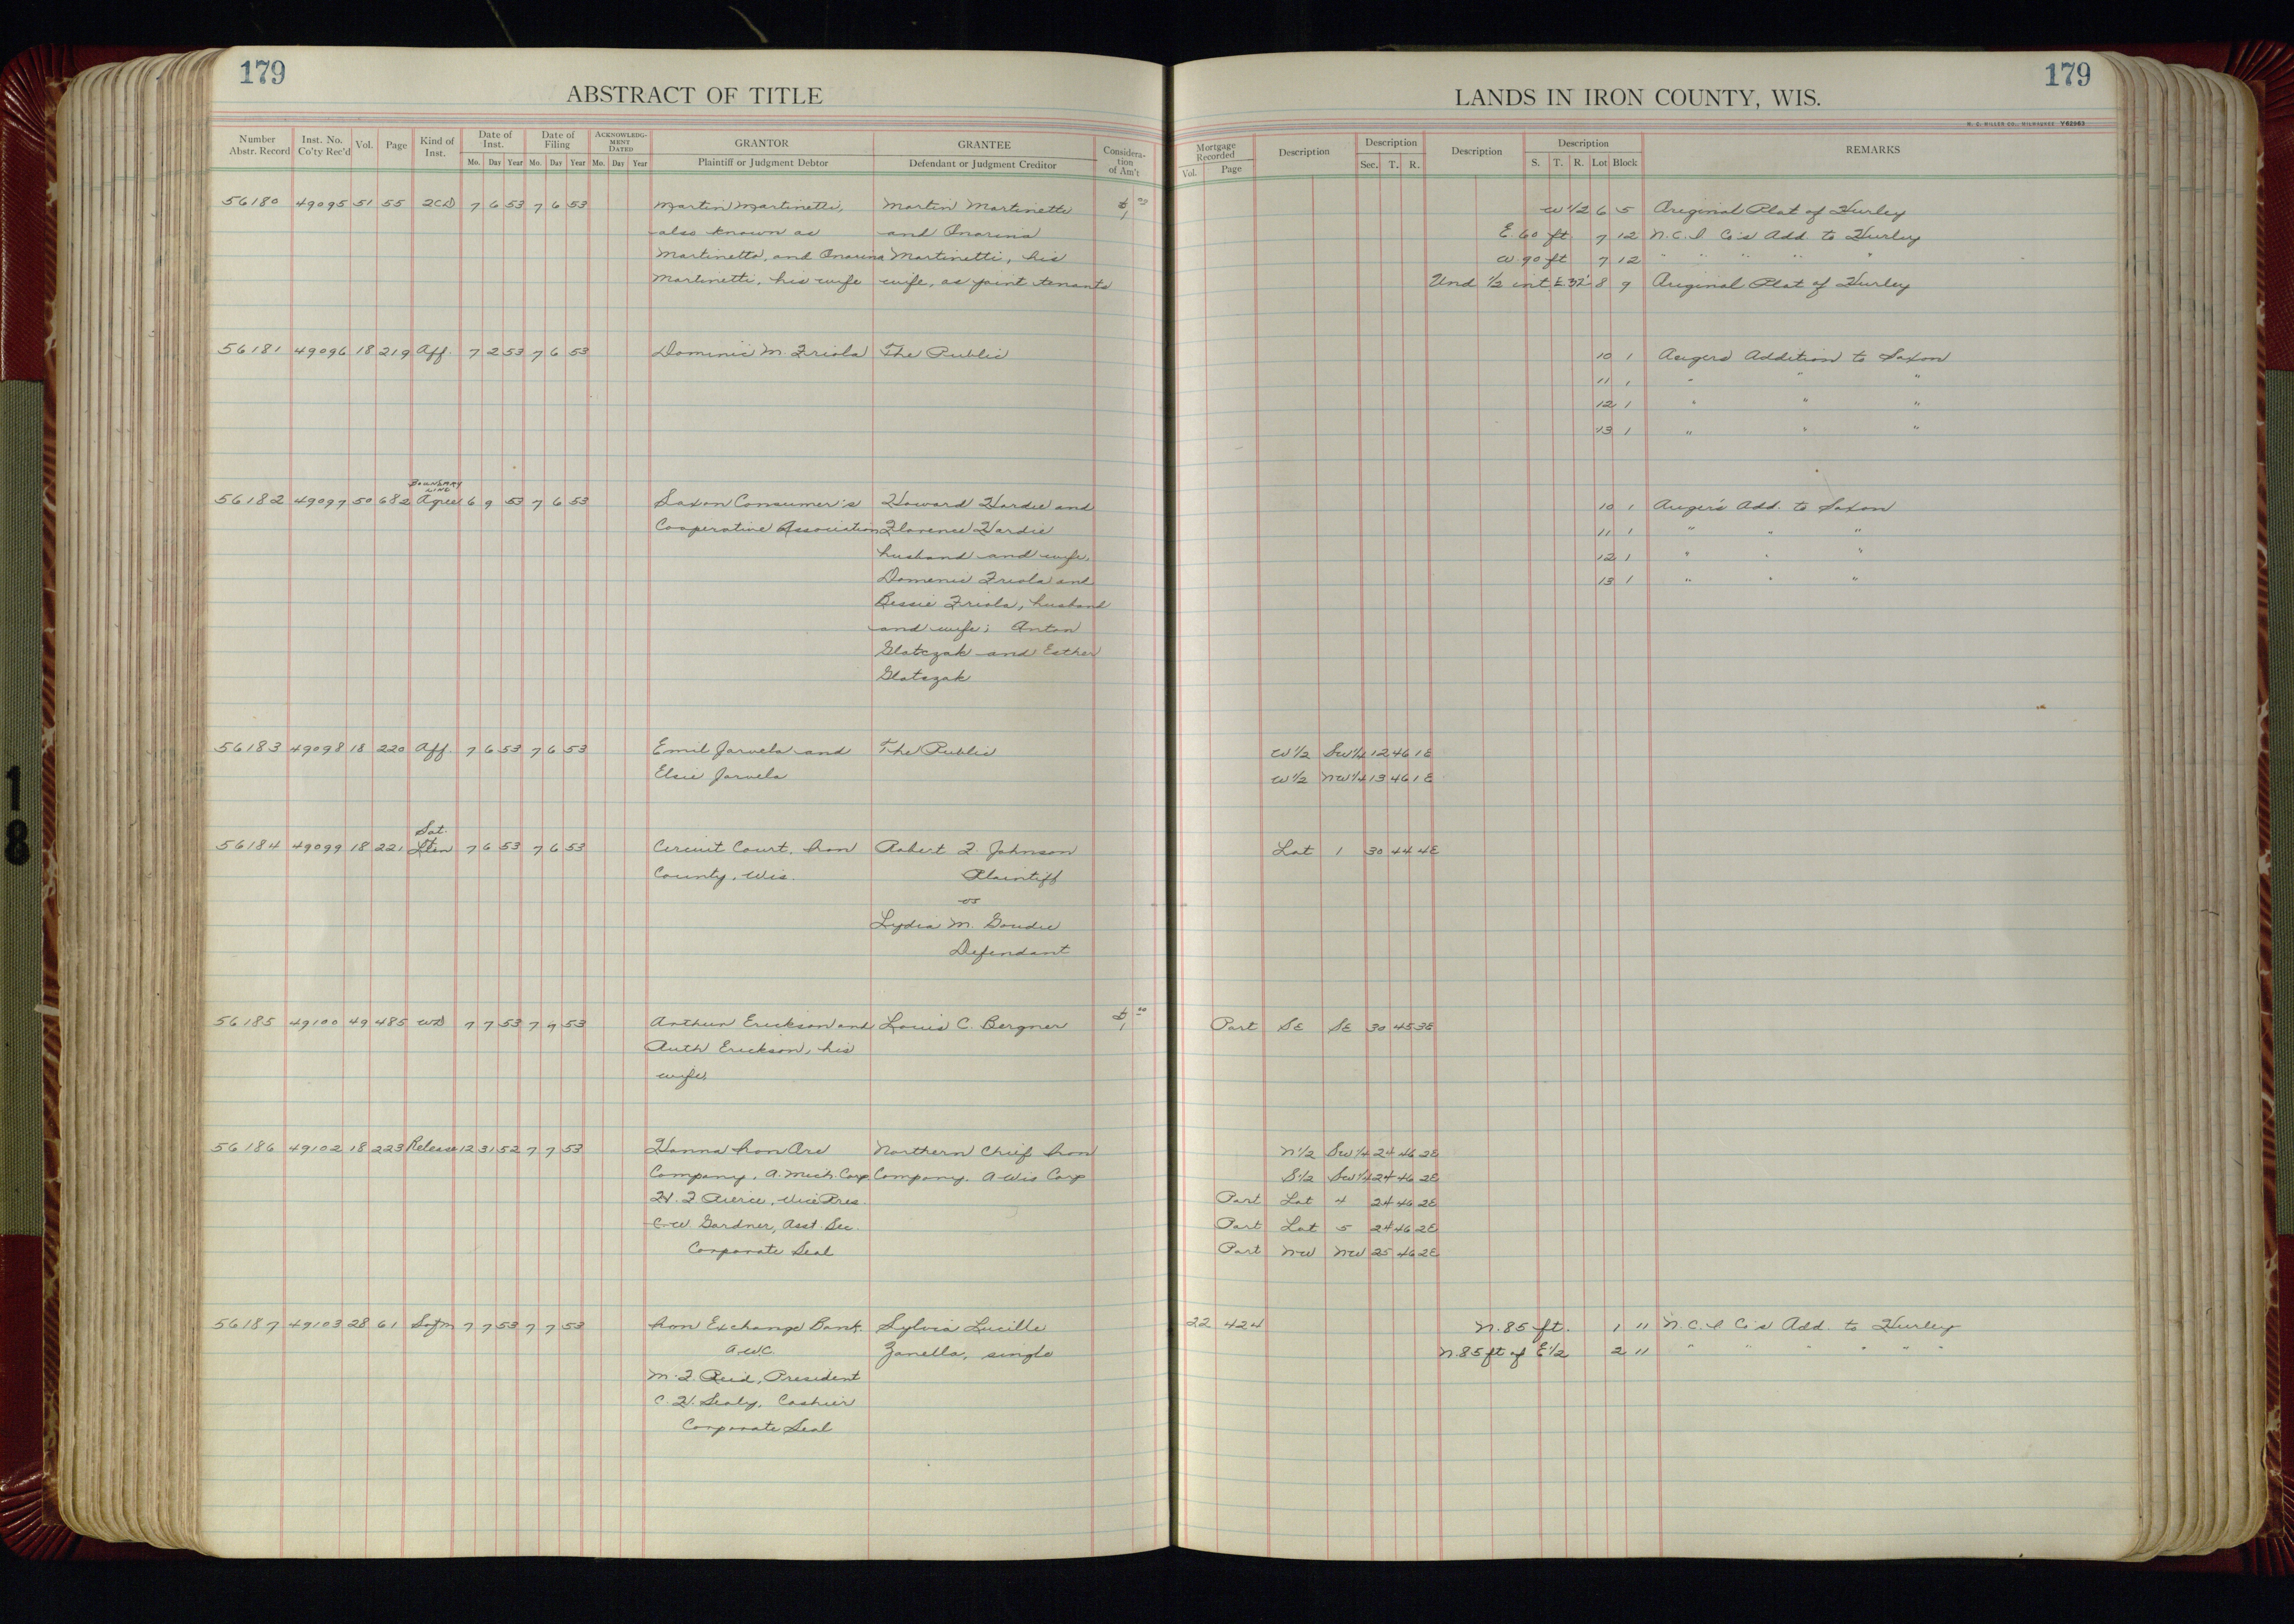 179
ABSTRACT OF TITLE
Number Abstr. Record Inst. No. Co'ty Rec'd Vol. Page Kind of Inst. Date of Inst. Mo. Day Year Date of Filing Mo. Day Year ACKNOWLEDGMENT DATED Mo. Day Year GRANTOR Plaintiff or Judgment Debtor GRANTEE Defendant or Judgment Creditor Consideration of Am't
56180 49095 51 55 2CD 7 6 53 7 6 53 Martin Martinetti, Martin Martinetti $1.00
also known as and Onorina
Martinetto, and Onorina Martinetti, his
Martinetti, his wife wife, as joint tenants
56181 49096 18 219 Aff. 7 2 53 7 6 53 Dominic M. Friola The Public
BOUNDARY LINE
56182 49097 50 682 Agree 6 9 53 7 6 53 Saxon Consumer's Howard Hardie and
Cooperative Association Florence Hardie
husband and wife,
Domenic Friola and
Bessie Friola, husband
and wife; Anton
Glatczak and Esther
Glatczak
56183 49098 18 220 Aff. 7 6 53 7 6 53 Emil Jarvela and The Public
Elsie Jarvela
Sat.
56184 49099 18 221 Lien 7 6 53 7 6 53 Circuit Court, Iron Robert F. Johnson
County, Wis. Plaintiff
vs
Lydia M. Goudie
Defendant
56185 49100 49 485 WD 7 7 53 7 7 53 Arthur Erickson and Louis C. Bergner $1.00
Ruth Erickson, his
wife,
56186 49102 18 223 Release 12 31 52 7 7 53 Hanna Iron Ore Northern Chief Iron
Company, A. Mich. Corp Company. A Wis Corp
H. F. Pierce, Vice Pres.
C.W. Gardner, Asst. Sec.
Corporate Seal
56187 49103 28 61 Sofm 7 7 53 7 7 53 Iron Exchange Bank. Sylvia Lucille
A.W.C. Zanella, single
M. F. Reid, President
C. H. Sealy, Cashier
Corporate Seal
179
LANDS IN IRON COUNTY, WIS.
H. C. MILLER CO., MILWAUKEE Y62963
Mortgage Recorded Vol. Page Description Description Sec. T. R. Description Description S. T. R. Lot Block REMARKS
W 1/2 6 5 Original Plat of Hurley
E. 60 ft 7 12 N.C.I. Co's Add. to Hurley
W. 90 ft 7 12 " " " " "
Und 1/2 int E 32' 8 9 Original Plat of Hurley
10 1 Augers Addition to Saxon
11 1 " " "
12 1 " " "
13 1 " " "
10 1 Auger's Add. to Saxon
11 1 " " "
12 1 " " "
13 1 " " "
W 1/2 SW 1/4 12 46 1E
W 1/2 NW 1/4 13 46 1E
Lot 1 30 44 4E
Part SE SE 30 45 3E
N 1/2 SW 1/4 24 46 2E
S 1/2 SW 1/4 24 46 2E
Part Lot 4 24 46 2E
Part Lot 5 24 46 2E
Part NW NW 25 46 2E
22 424 N. 85 ft. 1 11 N.C.I. Co's Add. to Hurley
N. 85 ft of E 1/2 2 11 " " " " " "
18